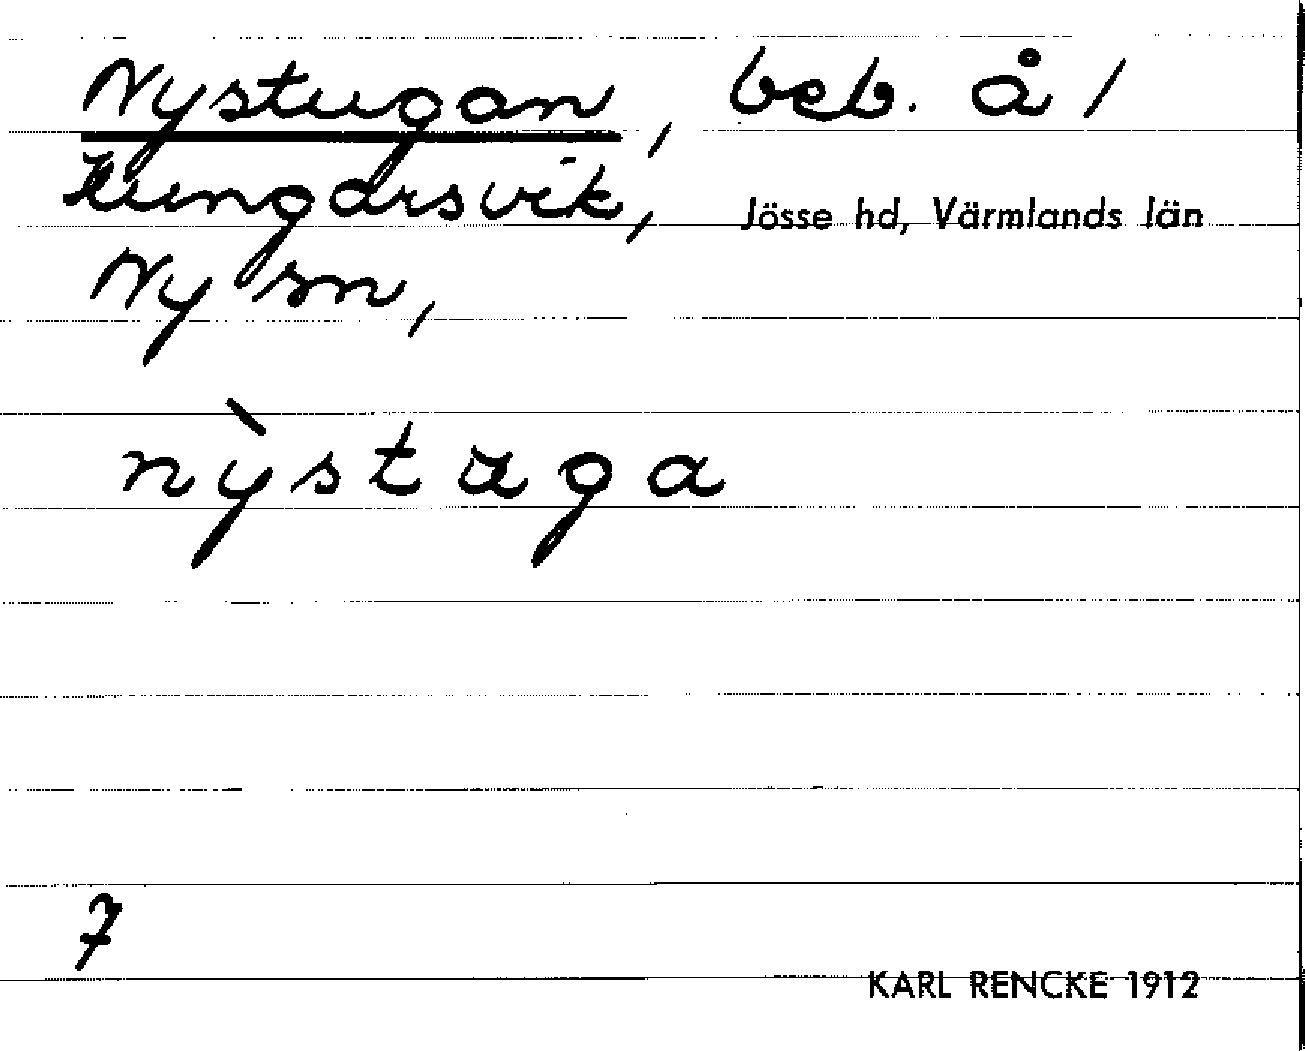 Nystugan, beb. å /
Kungarsvik, Jösse hd, Värmlands län
Ny sn,
nỳstuga
7
KARL RENCKE 1912